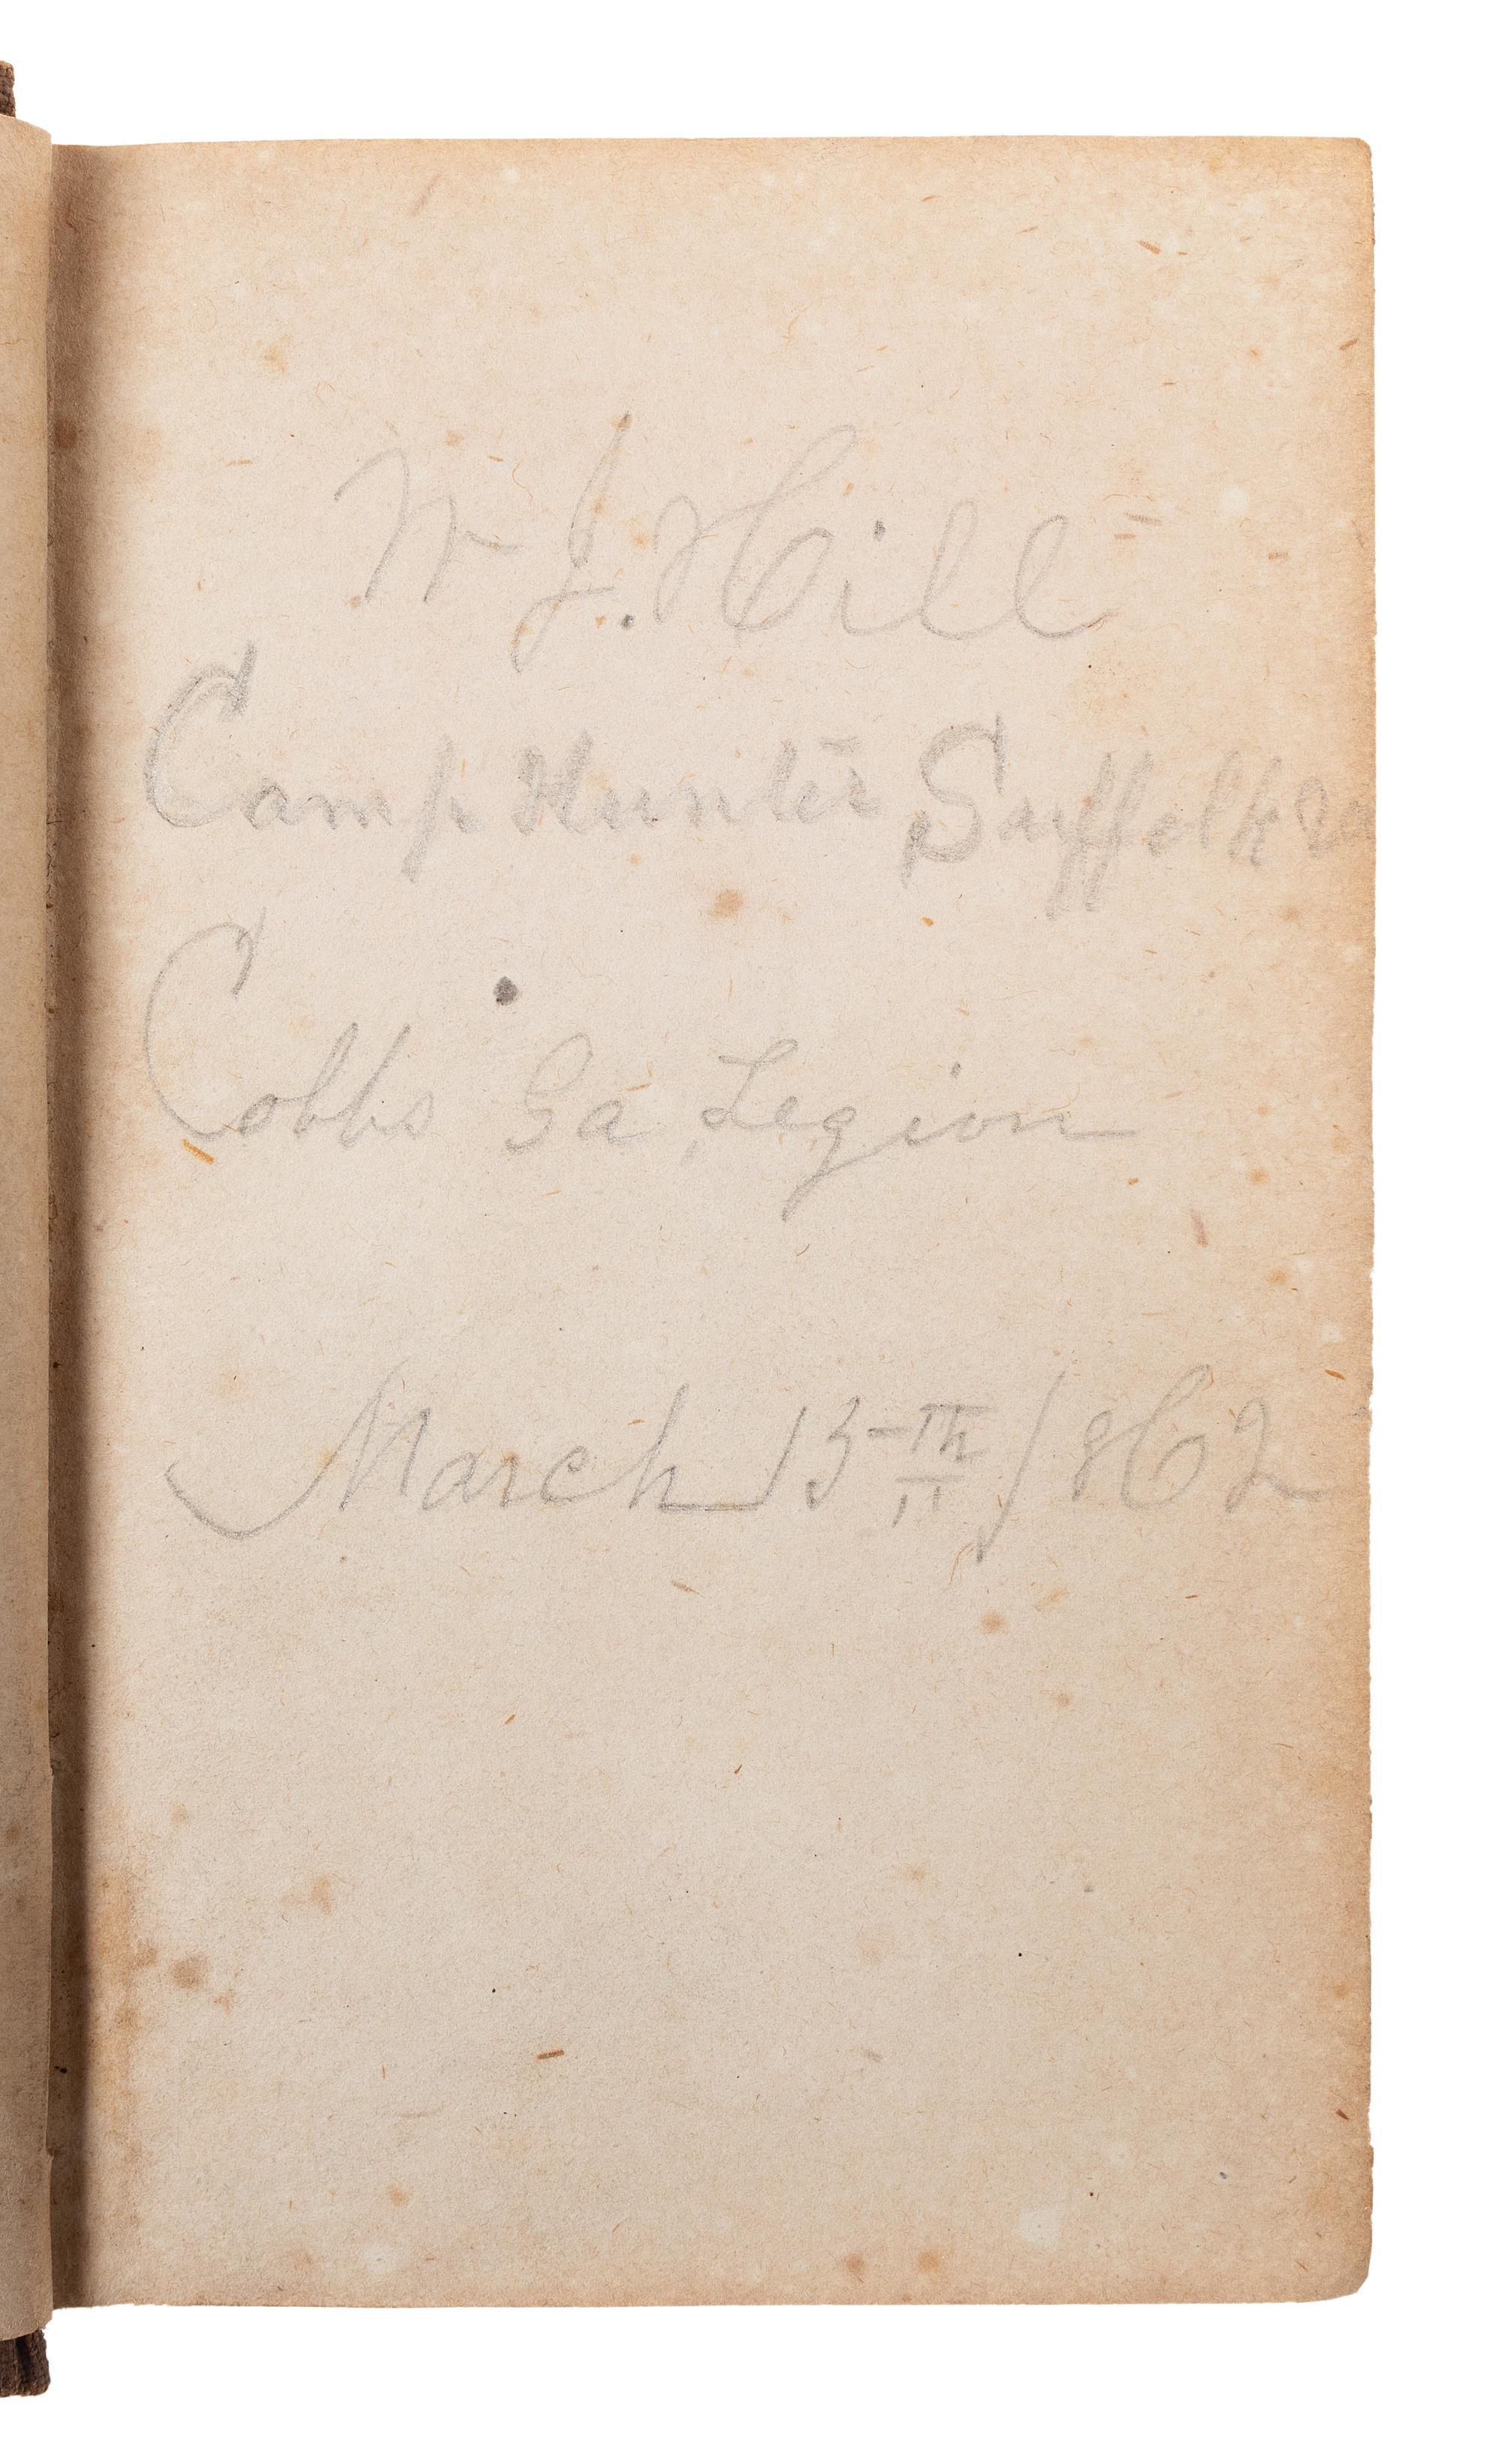 W J. Hill
Camp Hunter Suffolk Va
Cobbs Ga, Legion
March 15th 1862